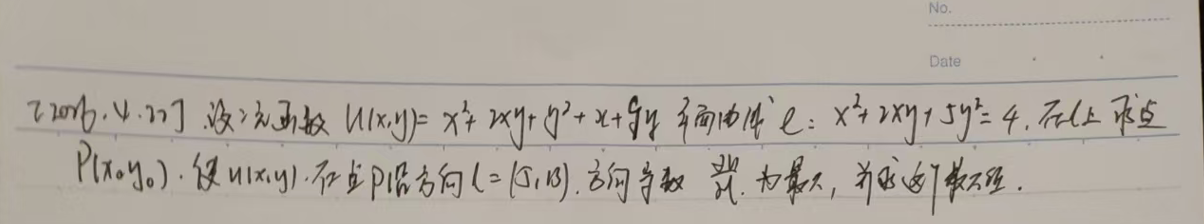 No.
Date
[2006.4.22] 设二元函数 u(x,y)= x²+2xy+y²+x+9y 平面曲线 e: x²+2xy+5y²=4. 在 l 上求点
P(x₀,y₀). 使 u(x,y). 在点P沿方向 l=(5,13). 方向导数 ∂u/∂l. 为最大, 并求这个最大值.